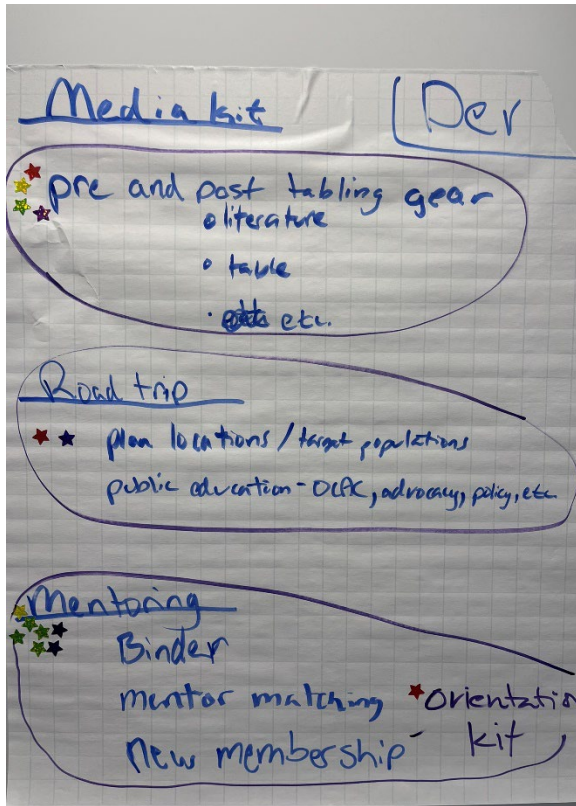 Media kit
Dev
pre and post tabling gear
• literature
• table
• etc.
Road trip
plan locations / target populations
public education - DCAC, advocacy, policy, etc.
Mentoring
Binder
mentor matching
new membership - orientation
kit